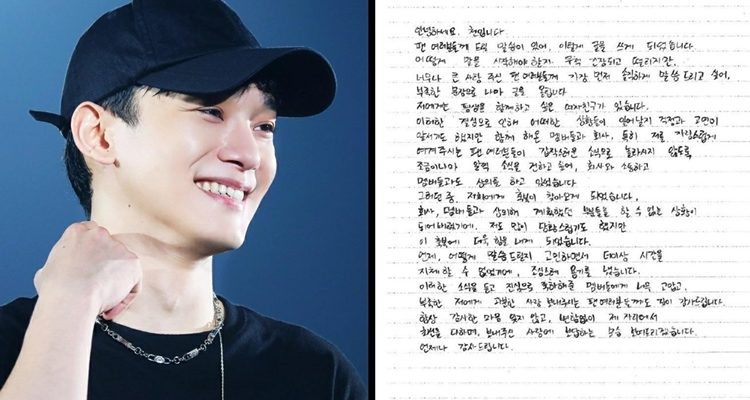 안녕하세요. 첸입니다.
팬 여러분들께 드릴 말씀이 있어, 이렇게 글을 쓰게 되었습니다.
어떻게 말을 시작해야할지, 무척 긴장되고 떨리지만,
너무나 큰 사랑 주신 팬 여러분들께 가장 먼저 솔직하게 말씀 드리고 싶어,
부족한 문장으로 나마 글을 올립니다.
저에게는 평생을 함께하고 싶은 여자친구가 있습니다.
이러한 결심으로 인해 어떠한 상황들이 일어날지 걱정과 고민이
앞서기도 했지만 함께 해온 멤버들과 회사, 특히 저를 자랑스럽게
여겨주시는 팬 여러분들이 갑작스러운 소식으로 놀라시지 않도록
조금이나마 일찍 소식을 전하고 싶어, 회사와 소통하고
멤버들과도 상의를 하고 있었습니다.
그러던 중, 저희에게 축복이 찾아오게 되었습니다.
회사, 멤버들과 상의해 계획했던 부분들을 할 수 없는 상황이
되어버렸기에, 저도 많이 당황스럽기도 했지만
이 축복에 더욱 힘을 내게 되었습니다.
언제, 어떻게 말씀드릴지 고민하면서 더이상 시간을
지체 할 수 없었기에, 조심스레 용기를 냈습니다.
이러한 소식을 듣고 진심으로 축하해준 멤버들에게 너무 고맙고,
부족한 저에게 과분한 사랑 보내주시는 팬 여러분들께도 깊이 감사드립니다.
항상 감사한 마음 잊지 않고, 변함없이 제 자리에서
최선을 다하며, 보내주신 사랑에 보답하는 모습 보여드리겠습니다.
언제나 감사드립니다.